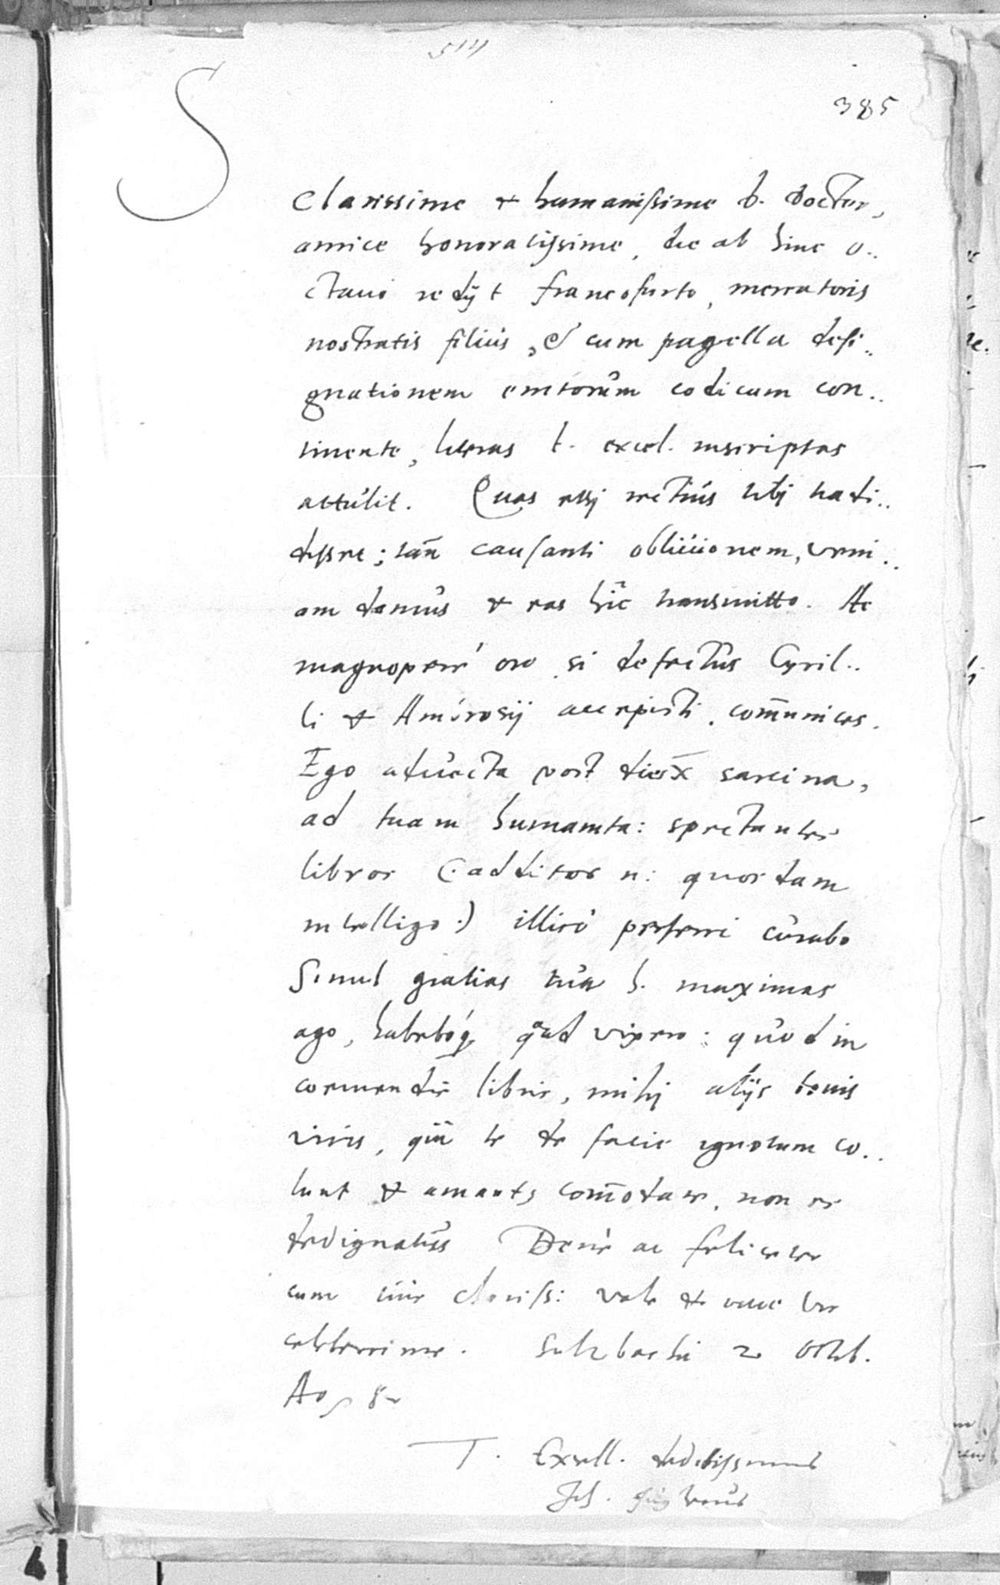 514
385
S
Clarissime & humanissime d. Doctor,
amice honoratissime, die ab hinc o..
ctauo redijt Francofurto, mercatoris
nostratis filius, & cum pagella desi..
gnationem emtorum codicum con..
tinente, literas t. excel. inscriptas
attulit. Quas etsj rectius tibj tradi..
disset; tam̃ causanti obliuionem, veni..
am damus & eas hic transmitto. Ac
magnoperè oro si defectus Cyril..
li & Ambrosij accepisti, com̃unices.
Ego aduecta post dies x sarcina,
ad tuam humanita: spectantes
libros (: additos n: quosdam
intelligo :) illicò perferri curabo
Simul gratias tuæ h. maximas
ago, habeboq quad vixero: quod in
coemendis libris, mihj alijs bonis
viris, qui te de facie ignotum co..
lunt & amant, com̃odare, non es
dedignatus Benè ac feliciter
cum tuis clariss: vale & viue vir
celeberrime. Sulzbachi 2 Octob.
Ao 82
T. Excell. deditissimus
Joh.